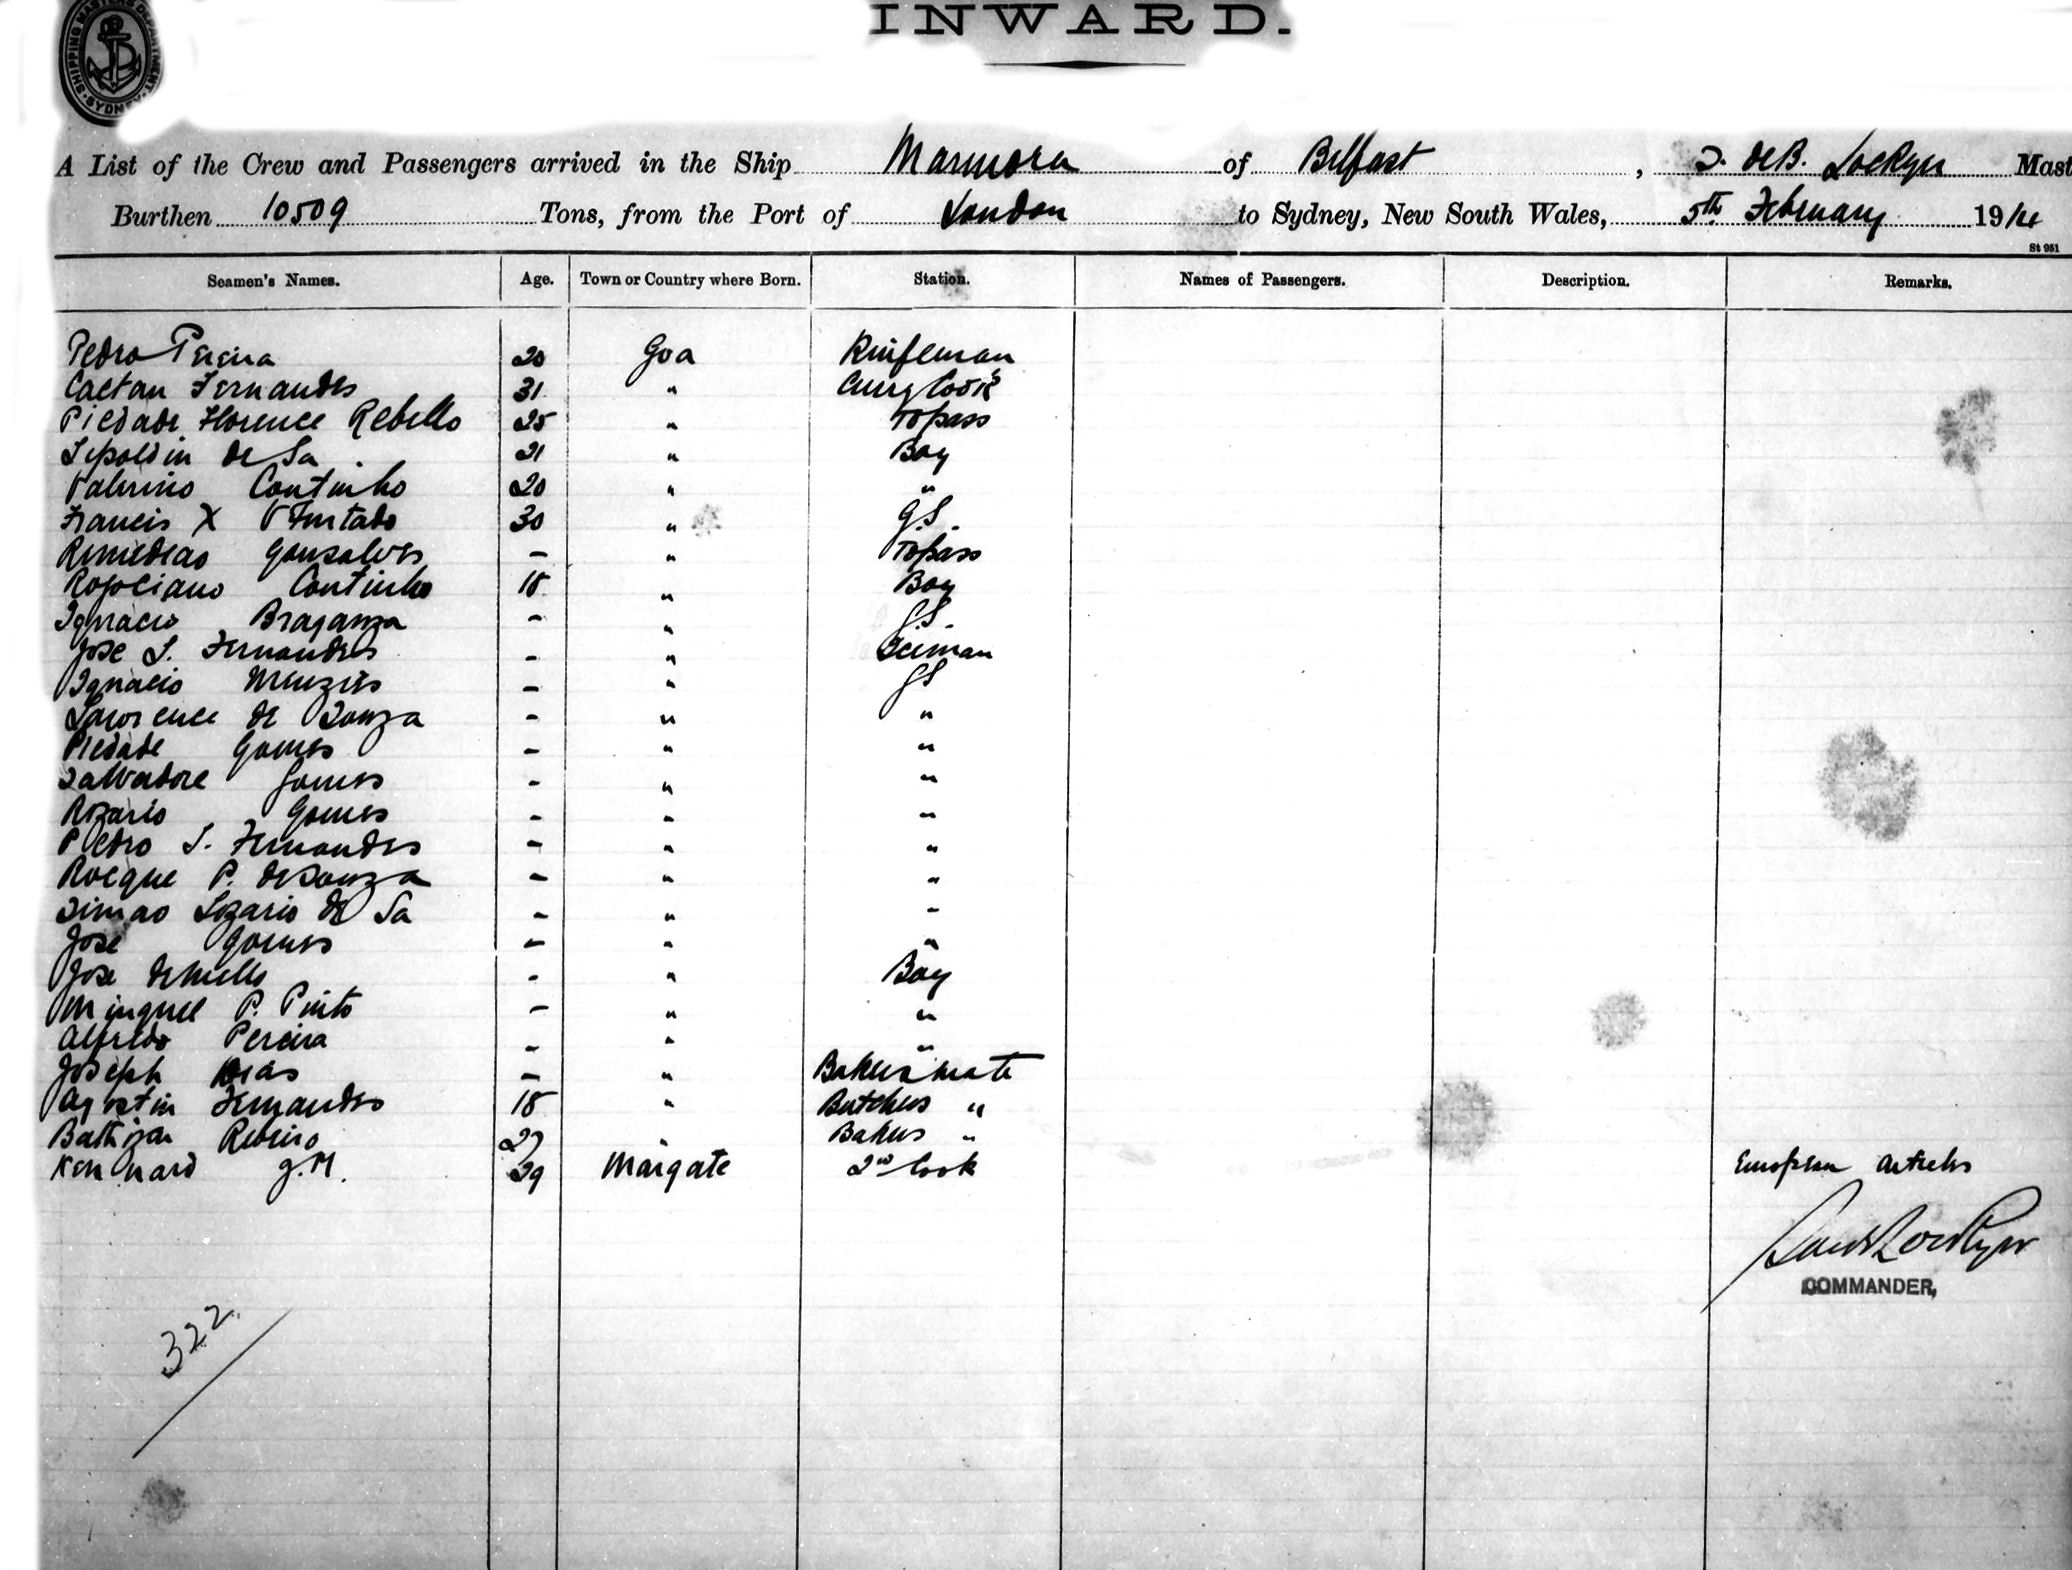 INWARD.
SHIPPING MASTERS DEPARTMENT SYDNEY
A List of the Crew and Passengers arrived in the Ship Marmora of Belfast, D. deB. Lockyer Mast
Burthen 10509 Tons, from the Port of London to Sydney, New South Wales, 5th February 1914
St 951
Seamen's Names. Age. Town or Country where Born. Station. Names of Passengers. Description. Remarks.
Pedro Pereira 20 Goa Knifeman
Caetan Fernandes 31 " Curry Cook
Piedade Florence Rebello 25 " Topass
de Sa 21 " Boy
Valerino Coutinho 20 " "
Francis X V Furtado 30 " G.S.
Remedeao Gonsalves - " Topass
Coutinho 18 " Boy
Ignacio Braganza - " G.S.
Jose S. Fernandes - " Iceman
Ignacio Menzies - " GS
Lawrence de Souza - " "
Piedade Gomes - " "
Salvadore Gomes - " "
Rozario Gomes - " "
Pedro S. Fernandes - " "
Rocque P. deSouza - " "
Simao Lozario de Sa - " "
Jose Gomes - " "
Jose deMello - " Boy
Minguel P. Pinto - " "
Alfredo Pereira - " "
Joseph Dias - " Bakers mate
Agostin Fernandes 18 " Butchers "
Ribeiro 27 " Bakers "
Kennard J.M. 29 Margate 2nd Cook European Articles
COMMANDER,
322